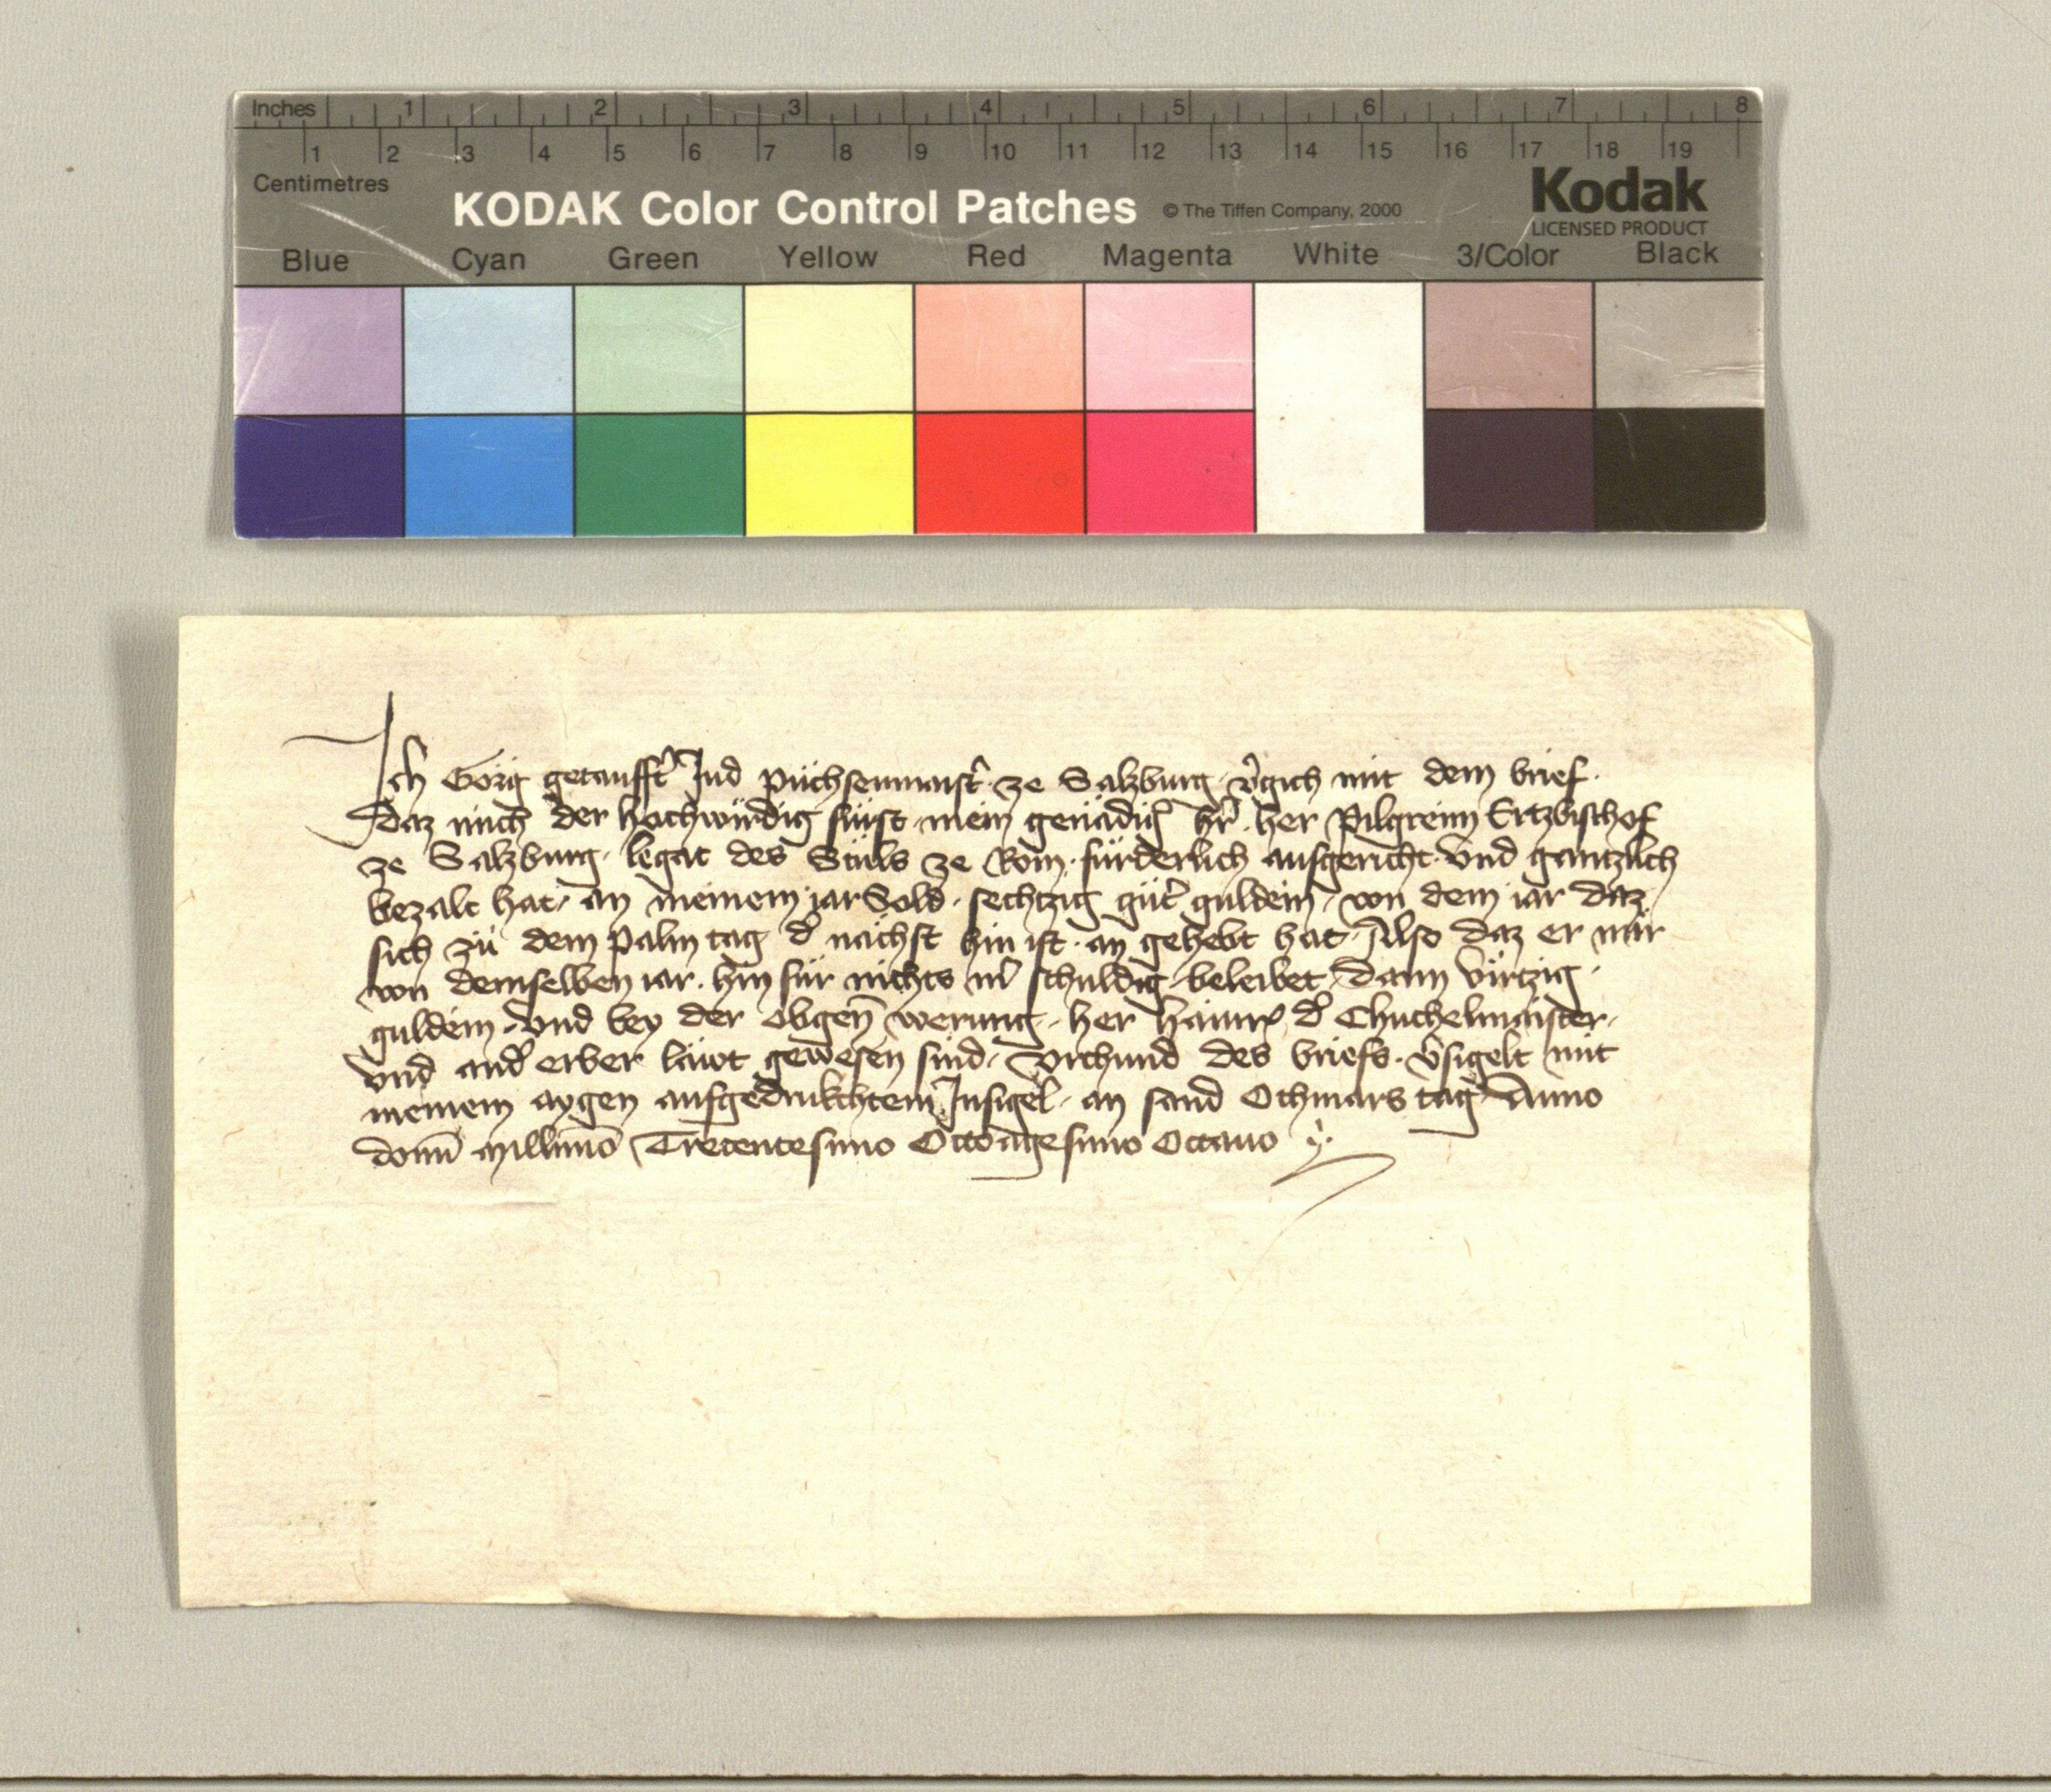 Inches 1 2 3 4 5 6 7 8
1 2 3 4 5 6 7 8 9 10 11 12 13 14 15 16 17 18 19
Centimetres
KODAK Color Control Patches © The Tiffen Company, 2000 Kodak
LICENSED PRODUCT
Blue Cyan Green Yellow Red Magenta White 3/Color Black
Ich Görig getaufft' Jud püchsenmaist' ze Salzburg v'gich mit dem brief.
Daz mich der hochwürdig fürst mein genädig' h'r her Pilgreim Ertzbischof
ze Salzburg legat des Stuls ze Rom fürderlich ausgericht und gantzlich
bezalt hat, an meinem jar Sold sechtzig gut' guldein, von dem iar daz
sich zü dem Palm tag d' nächst hin ist an gehebt hat Also daz er mir
von demselben iar hin für nichts m' schuldig beleibet dann virtzig
guldein und bey der obgen̄ werung her Hainr' d' Chuchelmaister
und and' erber läwt gewesen sind, Urchund des briefs v'sigelt mit
meinem aygen aufgedrukchtem Insigel an sand Othmars tag Anno
domī Millīmo Trecentesimo Octoagesimo Octauo